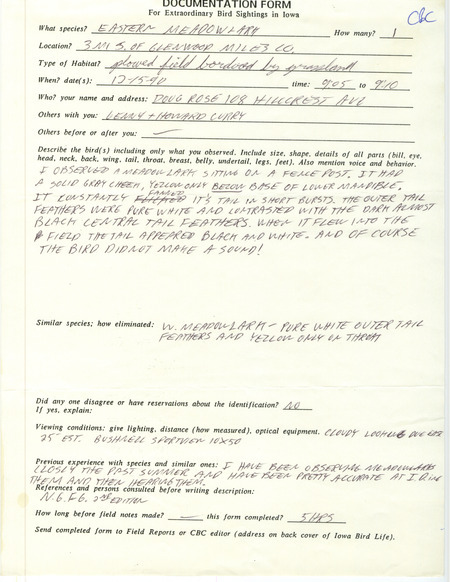 DOCUMENTATION FORM
For Extraordinary Bird Sightings in Iowa
CBC
What species? EASTERN MEADOWLARK How many? 1
Location? 3 MI S. OF GLENWOOD MILLS CO.
Type of Habitat? plowed field bordered by grassland
When? date(s): 12-15-90 time: 9:05 to 9:10
Who? your name and address: DOUG ROSE 108 HILLCREST AVE
Others with you: LENNY + HOWARD CURRY
Others before or after you: —
Describe the bird(s) including only what you observed. Include size, shape, details of all parts (bill, eye,
head, neck, back, wing, tail, throat, breast, belly, undertail, legs, feet). Also mention voice and behavior.
I OBSERVED A MEADOWLARK SITTING ON A FENCE POST. IT HAD
A SOLID GRAY CHEEK, YELLOW ONLY BELOW BASE OF LOWER MANDIBLE.
IT CONSTANTLY FANNED IT'S TAIL IN SHORT BURSTS. THE OUTER TAIL
FEATHERS WERE PURE WHITE AND CONTRASTED WITH THE DARK ALMOST
BLACK CENTRAL TAIL FEATHERS. WHEN IT FLEW INTO THE
FIELD THE TAIL APPEARED BLACK AND WHITE. AND OF COURSE
THE BIRD DID NOT MAKE A SOUND!
Similar species; how eliminated: W. MEADOWLARK - PURE WHITE OUTER TAIL
FEATHERS AND YELLOW ONLY ON THROAT
Did any one disagree or have reservations about the identification? NO
If yes, explain:
Viewing conditions: give lighting, distance (how measured), optical equipment. CLOUDY LOOKING DUE
25 EST. BUSHNELL SPORTVIEW 10X50
Previous experience with species and similar ones: I HAVE BEEN OBSERVING MEADOWLARKS
CLOSLY THE PAST SUMMER AND HAVE BEEN PRETTY ACCURATE AT I.D.ING
THEM AND THEN HEARING THEM.
References and persons consulted before writing description:
N.G.F.G. 2nd EDITION
How long before field notes made? — this form completed? 5 HRS
Send completed form to Field Reports or CBC editor (address on back cover of Iowa Bird Life).